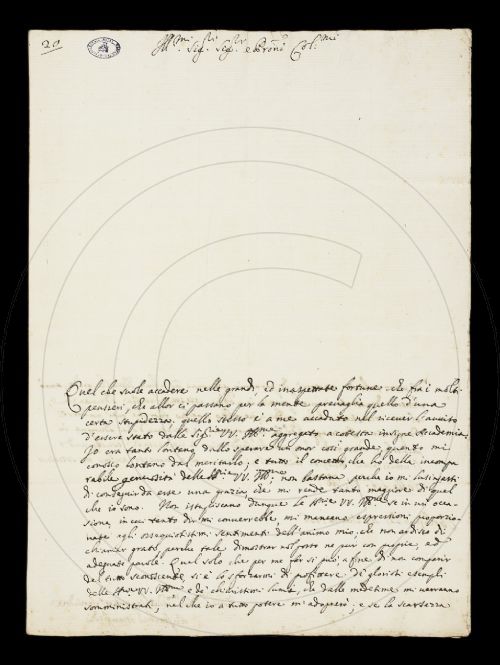 20
Ill.mi Sig.ri Sig.ri e Pron.i Col.mi
Quel che suole accadere nelle grandi, ed inaspettate fortune che fra i molti
pensieri, che allor ci passano per la mente prevaglia quello d'una
certa stupidezza, quello stesso è a me accaduto nel ricever l'avviso
d'essere stato dalle Sig.rie VV. Ill.me aggregato a cotesta insigne Accademia.
Io era tanto lontano dallo sperare un onor così grande, quanto mi
conosco lontano dal meritarlo; e tutto il concetto, che ho della incompa
rabile generosità delle VV. Ill.me non bastava perche io mi lusingassi
di conseguir da esse una grazia, che mi rende tanto maggiore di quel
che io sono. Non istupiscano dunque le VV. Ill.me se in un' occa
sione, in cui tanto dir mi converrebbe, mi mancano espressioni proporzio
nate agli ossequiosissimi sentimenti dell'animo mio, che non ardisco di
chiamar grato, perche tale dimostrar nol posso ne pur con proprie, ed
adeguate parole. Quel solo che per me far si può, a fine di non comparir
del tutto sconoscente si è lo sforzarmi di profittare di gloriosi esempli
delle VV. Ill.me e de' chiarissimi lumi, che dalle medesime mi verranno
somministrati, al che io a tutto potere mi adoprerò; e se la scarsezza